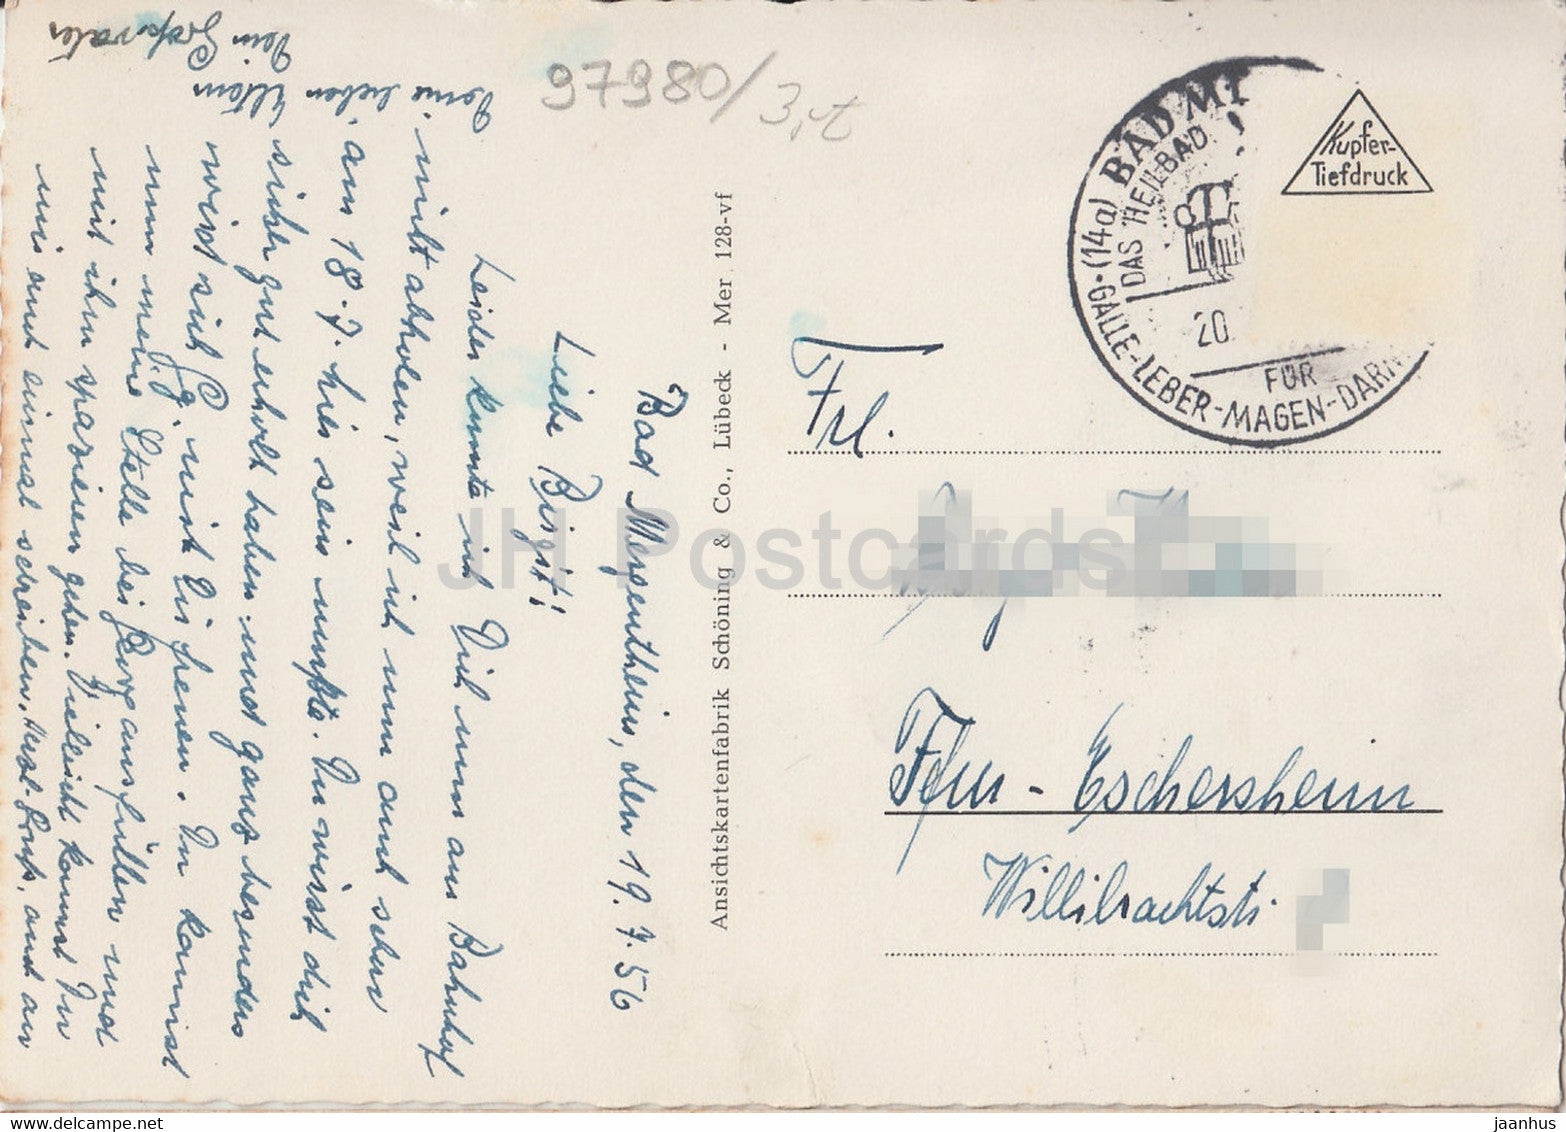 Bad Mergentheim, den 19.7.56
Liebe Birgit!
Leider konnte ich Dich nun am Bahnhof
nicht abholen, weil ich nun auch schon
am 18.7. hier sein mußte. Du wirst dich
sicher gut erholt haben und ganz besonders
wird sich G. mit Dir freuen. Du kannst
nun meine Stelle bei Jürg ausfüllen und
mit ihm spazieren gehen. Vielleicht kannst Du
mir auch einmal schreiben. Herzl. Gruß, auch an
Deine lieben Eltern
Dein Großvater
97980/3,
Ansichtskartenfabrik Schöning & Co., Lübeck - Mer 128-vf
(14a) BAD ME
DAS HEILBAD
20.
FÜR
GALLE-LEBER-MAGEN-DARM
Kupfer-
Tiefdruck
Frl.
Ffm - Eschersheim
Willibrachtstr.
JH Postcards
jaanhus